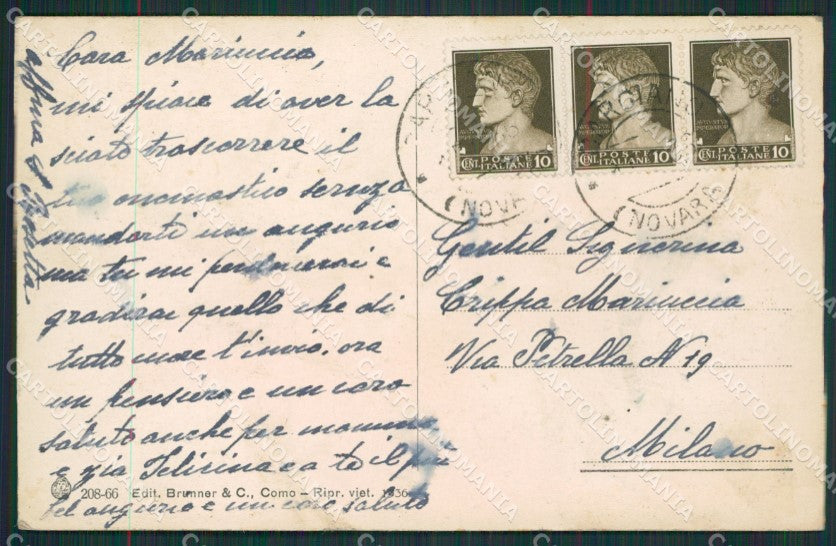 Cara Mariuccia,
mi spiace di aver la
sciato trascorrere il
tuo onomastico senza
mandarti un augurio
ma tu mi perdonerai e
gradirai quello che di
tutto cuore t'invio. ora
un pensiero e un caro
saluto anche per mamma
e zia Felicina e a te il più
bel augurio e un caro saluto
208-66 Edit. Brunner & C., Como - Ripr. viet. 1936
CENT. POSTE ITALIANE 10
CENT. POSTE ITALIANE 10
CENT. POSTE ITALIANE 10
(NOVARA)
Gentil Signorina
Crippa Mariuccia
Via Petrella N 19
Milano
CARTOLINOMANIA